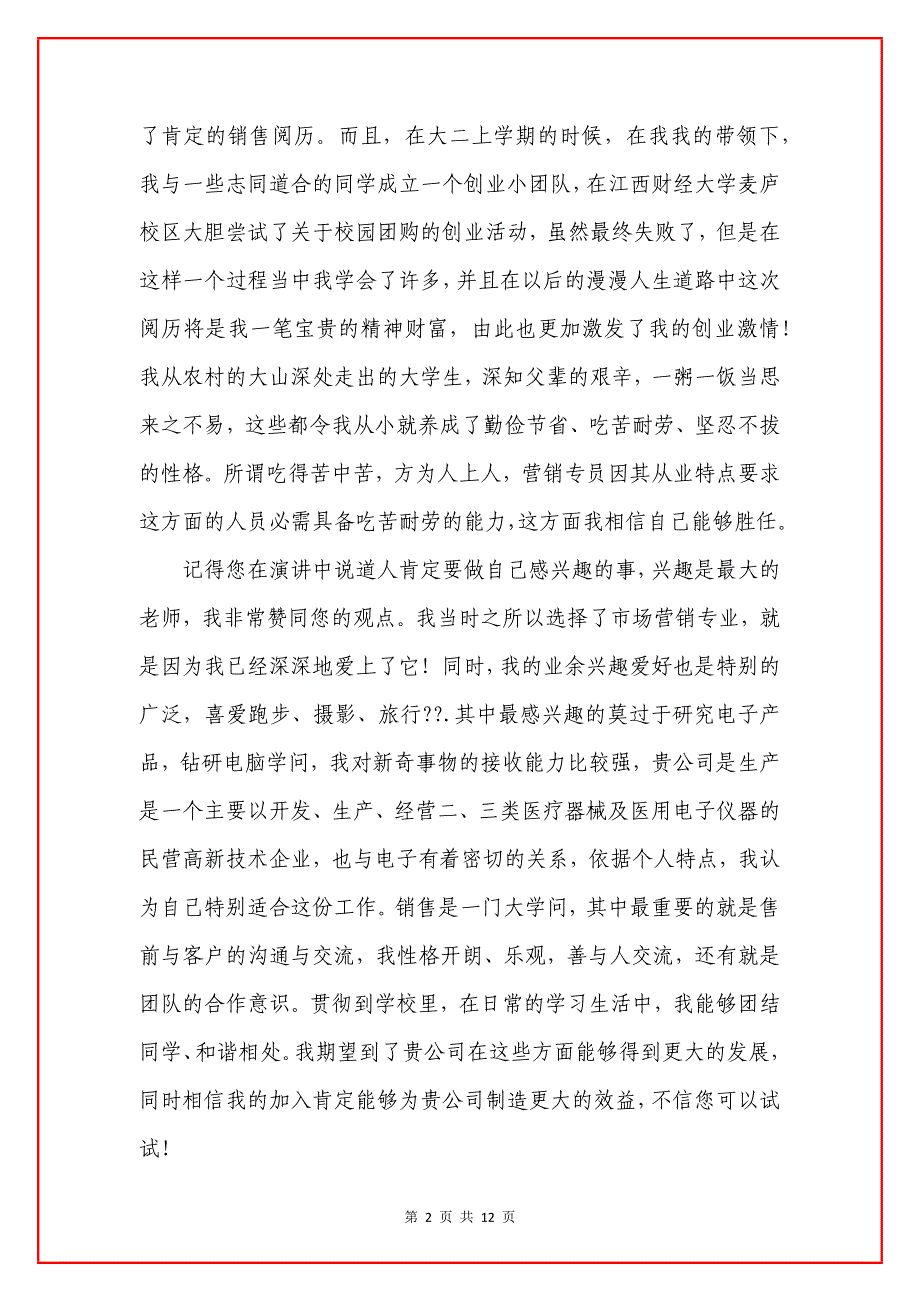 了肯定的销售阅历。而且，在大二上学期的时候，在我我的带领下，
我与一些志同道合的同学成立一个创业小团队，在江西财经大学麦庐
校区大胆尝试了关于校园团购的创业活动，虽然最终失败了，但是在
这样一个过程当中我学会了许多，并且在以后的漫漫人生道路中这次
阅历将是我一笔宝贵的精神财富，由此也更加激发了我的创业激情！
我从农村的大山深处走出的大学生，深知父辈的艰辛，一粥一饭当思
来之不易，这些都令我从小就养成了勤俭节省、吃苦耐劳、坚忍不拔
的性格。所谓吃得苦中苦，方为人上人，营销专员因其从业特点要求
这方面的人员必需具备吃苦耐劳的能力，这方面我相信自己能够胜任。
记得您在演讲中说道人肯定要做自己感兴趣的事，兴趣是最大的
老师，我非常赞同您的观点。我当时之所以选择了市场营销专业，就
是因为我已经深深地爱上了它！同时，我的业余兴趣爱好也是特别的
广泛，喜爱跑步、摄影、旅行??.其中最感兴趣的莫过于研究电子产
品，钻研电脑学问，我对新奇事物的接收能力比较强，贵公司是生产
是一个主要以开发、生产、经营二、三类医疗器械及医用电子仪器的
民营高新技术企业，也与电子有着密切的关系，依据个人特点，我认
为自己特别适合这份工作。销售是一门大学问，其中最重要的就是售
前与客户的沟通与交流，我性格开朗、乐观，善与人交流，还有就是
团队的合作意识。贯彻到学校里，在日常的学习生活中，我能够团结
同学、和谐相处。我期望到了贵公司在这些方面能够得到更大的发展，
同时相信我的加入肯定能够为贵公司制造更大的效益，不信您可以试
试！
第 2 页 共 12 页